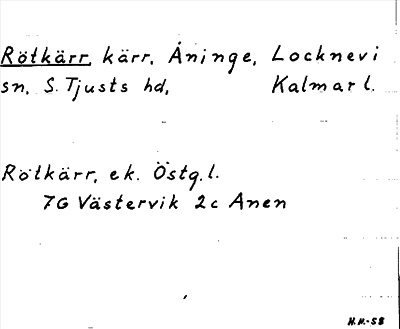 Rötkärr, kärr, Åninge, Locknevi
sn, S. Tjusts hd, Kalmar l.
Rötkärr, ek. Östg. l.
7G Västervik 2c Anen
H.H.-58